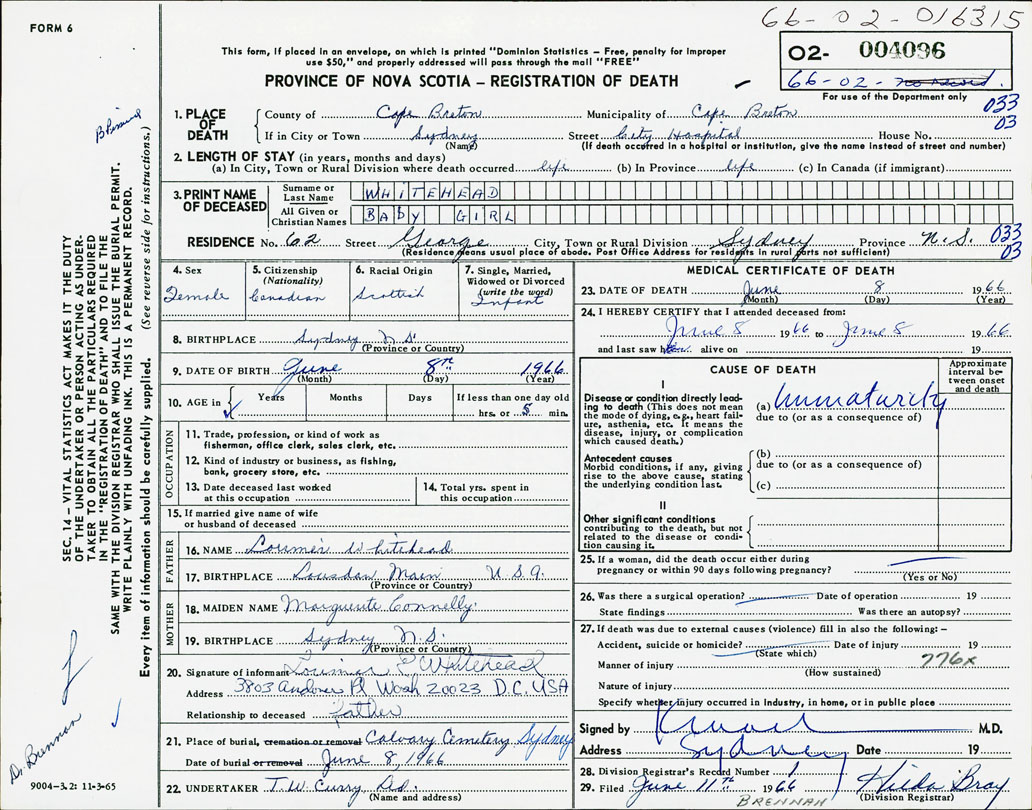 66-02-016315
FORM 6
This form, if placed in an envelope, on which is printed "Dominion Statistics – Free, penalty for improper
use $50," and properly addressed will pass through the mail "FREE"
O2- 004096
66-02-
For use of the Department only
PROVINCE OF NOVA SCOTIA – REGISTRATION OF DEATH
033
03
1. PLACE OF DEATH
County of Cape Breton Municipality of Cape Breton
If in City or Town Sydney Street City Hospital House No.
(Name) (If death occurred in a hospital or institution, give the name instead of street and number)
2. LENGTH OF STAY (in years, months and days)
(a) In City, Town or Rural Division where death occurred life (b) In Province life (c) In Canada (if immigrant)
3. PRINT NAME OF DECEASED
Surname or Last Name WHITEHEAD
All Given or Christian Names BABY GIRL
RESIDENCE No. 62 Street George City, Town or Rural Division Sydney Province N.S. 033
03
(Residence means usual place of abode. Post Office Address for residents in rural parts not sufficient)
4. Sex
Female
5. Citizenship
(Nationality)
Canadian
6. Racial Origin
Scottish
7. Single, Married,
Widowed or Divorced
(write the word)
Infant
8. BIRTHPLACE Sydney N.S.
(Province or Country)
9. DATE OF BIRTH June 8th 1966
(Month) (Day) (Year)
10. AGE in
Years Months Days If less than one day old
hrs. or 5 min.
OCCUPATION
11. Trade, profession, or kind of work as
fisherman, office clerk, sales clerk, etc.
12. Kind of industry or business, as fishing,
bank, grocery store, etc.
13. Date deceased last worked
at this occupation
14. Total yrs. spent in
this occupation
15. If married give name of wife
or husband of deceased
FATHER
16. NAME Lorimer Whitehead
17. BIRTHPLACE Main U.S.A.
(Province or Country)
MOTHER
18. MAIDEN NAME Marguerite Connelly
19. BIRTHPLACE Sydney N.S.
(Province or Country)
20. Signature of informant Lorimer E Whitehead
Address 3803 Andover Pl Wash 20023 D.C. USA
Relationship to deceased Father
21. Place of burial, cremation or removal Calvary Cemetery Sydney
Date of burial or removal June 8, 1966
22. UNDERTAKER T.W. Curry
(Name and address)
MEDICAL CERTIFICATE OF DEATH
23. DATE OF DEATH June 8 1966
(Month) (Day) (Year)
24. I HEREBY CERTIFY that I attended deceased from:
June 8 1966 to June 8 1966
and last saw h alive on 19
CAUSE OF DEATH
Approximate
interval be-
tween onset
and death
I
Disease or condition directly lead-
ing to death (This does not mean
the mode of dying, e.g., heart fail-
ure, asthenia, etc. It means the
disease, injury, or complication
which caused death.)
(a) Immaturity
due to (or as a consequence of)
Antecedent causes
Morbid conditions, if any, giving
rise to the above cause, stating
the underlying condition last.
(b)
due to (or as a consequence of)
(c)
II
Other significant conditions
contributing to the death, but not
related to the disease or condi-
tion causing it.
25. If a woman, did the death occur either during
pregnancy or within 90 days following pregnancy?
(Yes or No)
26. Was there a surgical operation? Date of operation 19
State findings Was there an autopsy?
27. If death was due to external causes (violence) fill in also the following:–
Accident, suicide or homicide? Date of injury 19
(State which)
776x
Manner of injury
(How sustained)
Nature of injury
Specify whether injury occurred in industry, in home, or in public place
Signed by M.D.
Address Sydney Date 19
28. Division Registrar's Record Number 1
29. Filed June 11th 1966 Hilda Bray
(Division Registrar)
BRENNAN
SEC. 14 – VITAL STATISTICS ACT MAKES IT THE DUTY
OF THE UNDERTAKER OR PERSON ACTING AS UNDER-
TAKER TO OBTAIN ALL THE PARTICULARS REQUIRED
IN THE "REGISTRATION OF DEATH" AND TO FILE THE
SAME WITH THE DIVISION REGISTRAR WHO SHALL ISSUE THE BURIAL PERMIT.
WRITE PLAINLY WITH UNFADING INK. THIS IS A PERMANENT RECORD.
Every item of information should be carefully supplied. (See reverse side for instructions.)
Dr. Brennan
9004-3.2: 11-3-65